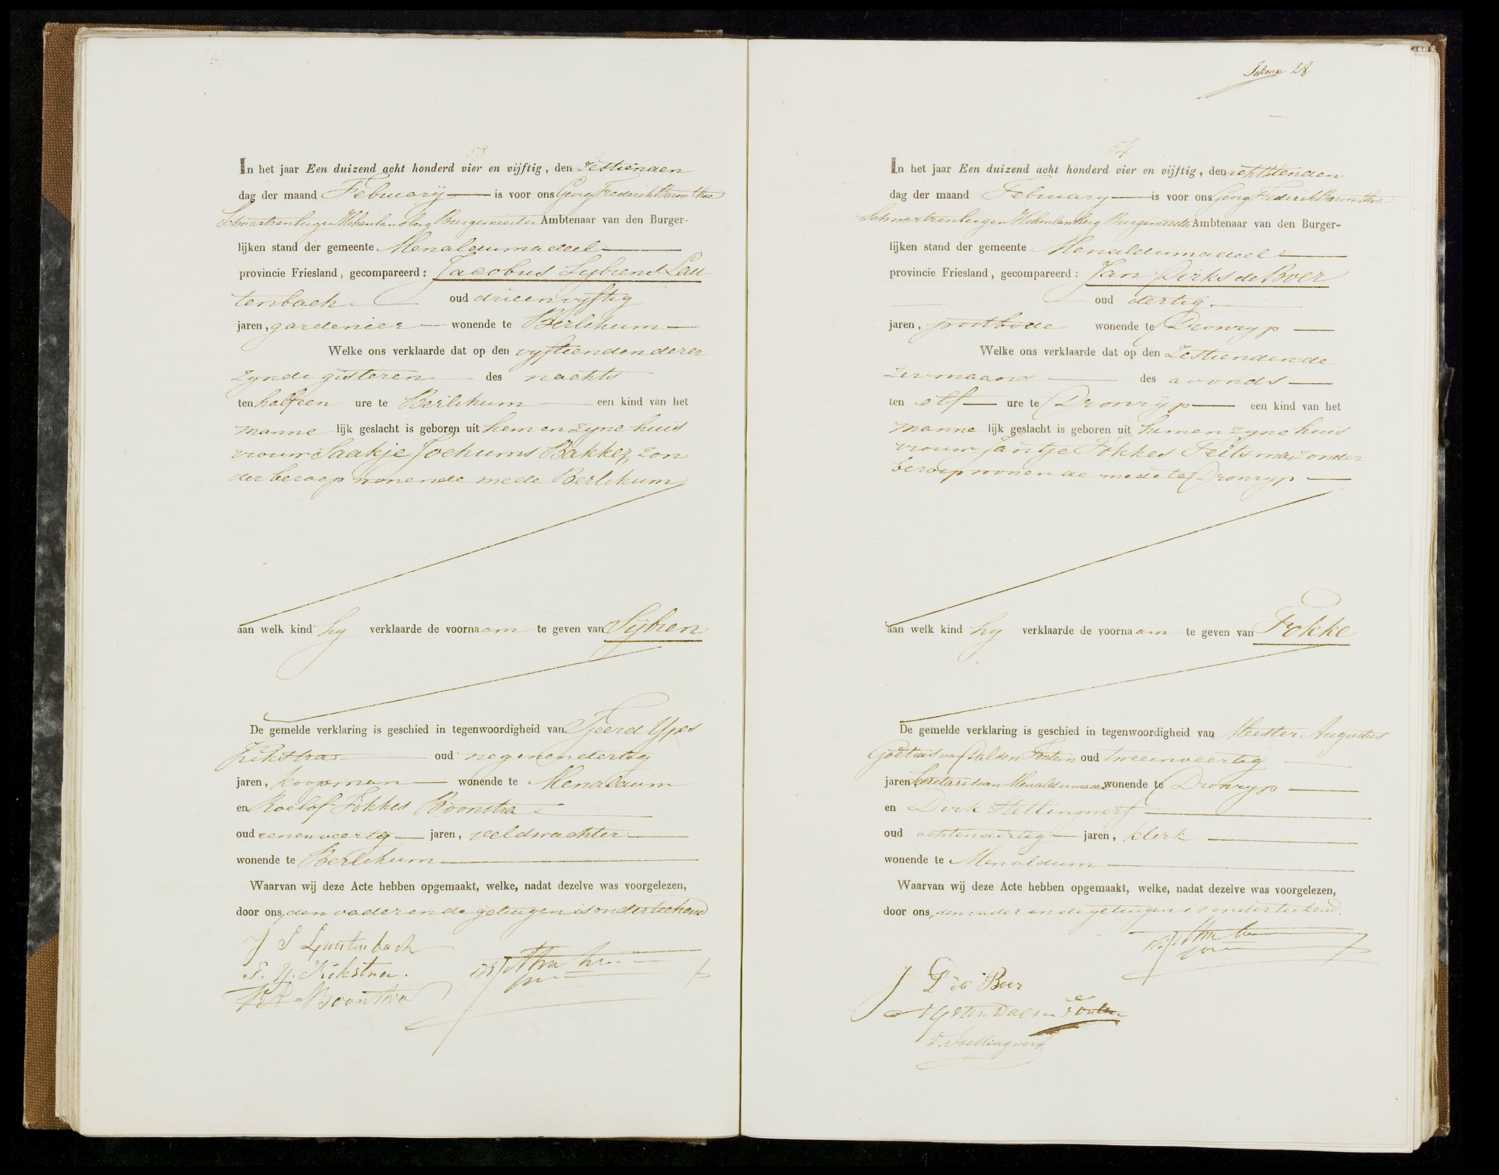 In het jaar Een duizend acht honderd vier en vijftig, den zestienden
dag der maand February is voor ons Georg Frederich Baron thoe
Schwartzenberg en Hohenlansberg Burgemeester Ambtenaar van den Burger-
lijken stand der gemeente Menaldumadeel
provincie Friesland, gecompareerd: Jacobus Sybrens Lau
tenbach oud drieenvyftig
jaren, gardenier wonende te Berlikum
Welke ons verklaarde dat op den vyftienden dezer
zynde gisteren des nachts
ten halfeen ure te Berlikum een kind van het
manne lijk geslacht is geboren uit hem en zyne huis
vrouw Saakje Jochums Bakker, zon
der beroep wonende mede Berlikum
aan welk kind hy verklaarde de voornaam te geven van Sijbren
De gemelde verklaring is geschied in tegenwoordigheid van Sjoerd Ypes
Kikstra oud negenendertig
jaren, koopman wonende te Menaldum
en Roelof Fokkes Boonstra
oud eenenveertig jaren, veldwachter
wonende te Berlikum
Waarvan wij deze Acte hebben opgemaakt, welke, nadat dezelve was voorgelezen,
door ons, den vader en de getuigen is onderteekend
J S Lautenbach
S. Y. Kikstra.
R F Boonstra
Secunda 28
In het jaar Een duizend acht honderd vier en vijftig, den zeventienden
dag der maand February is voor ons Georg Frederich Baron thoe
Schwartzenberg en Hohenlansberg Burgemeester Ambtenaar van den Burger-
lijken stand der gemeente Menaldumadeel
provincie Friesland, gecompareerd: Jan Dirks de Boer
oud dertig
jaren, postbode wonende te Dronryp
Welke ons verklaarde dat op den zestienden de
zer maand des avonds
ten elf ure te Dronryp een kind van het
manne lijk geslacht is geboren uit hem en zyne huis
vrouw Jantje Fokkes Feitsma, zonder
beroep wonende mede te Dronryp
aan welk kind hy verklaarde de voornaam te geven van Fokke
De gemelde verklaring is geschied in tegenwoordigheid van Meester Augustus
oud tweeenveertig
jaren, Secretaris van Menaldumadeel wonende te Dronryp
en Dirk Stellingwerf
oud achtenveertig jaren, klerk
wonende te Menaldum
Waarvan wij deze Acte hebben opgemaakt, welke, nadat dezelve was voorgelezen,
door ons, den vader en de getuigen is onderteekend.
J D de Boer
D. Stellingwerf